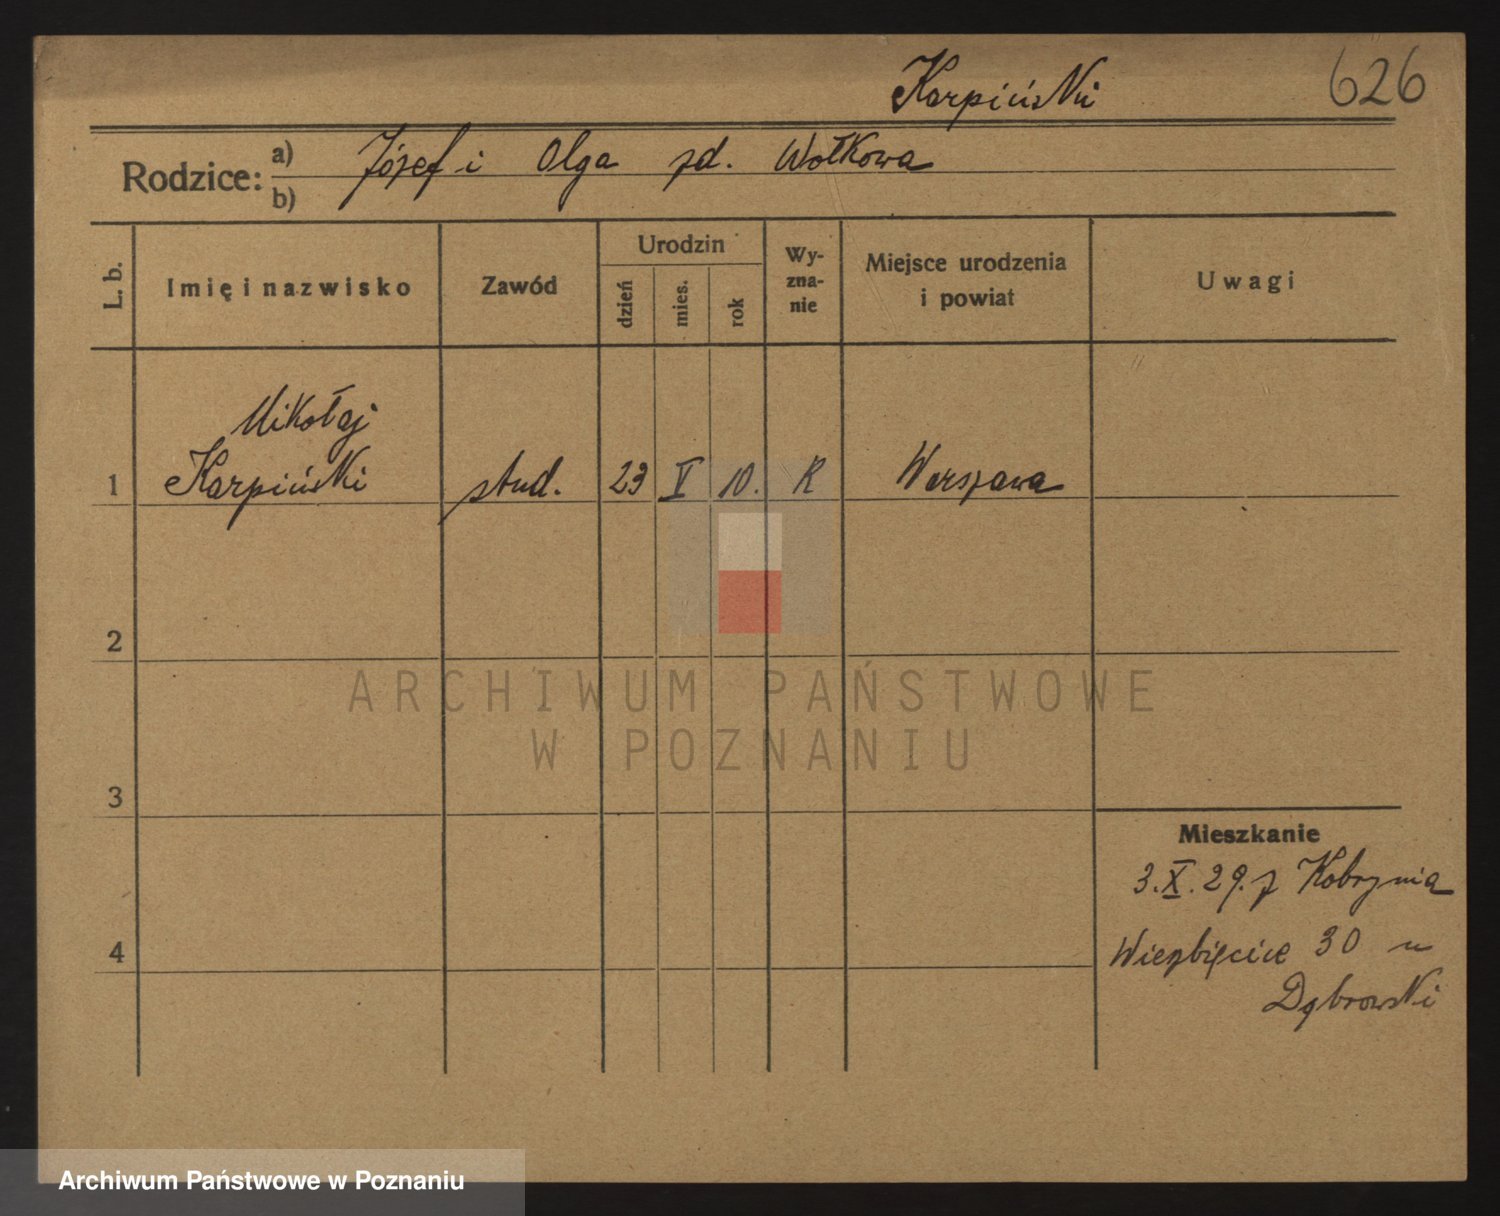 Karpiński 626
Rodzice: a) Józef i Olga zd. Wołkowa
b)
L. b. Imię i nazwisko Zawód Urodzin Wy-zna-nie Miejsce urodzenia i powiat Uwagi
dzień mies. rok
Mikołaj
1 Karpiński stud. 23 V 10. R Warszawa
2
ARCHIWUM PAŃSTWOWE
W POZNANIU
3
Mieszkanie
3.X.29. z Kobrynia
4 Wierzbięcice 30 u
Dąbrowski
Archiwum Państwowe w Poznaniu